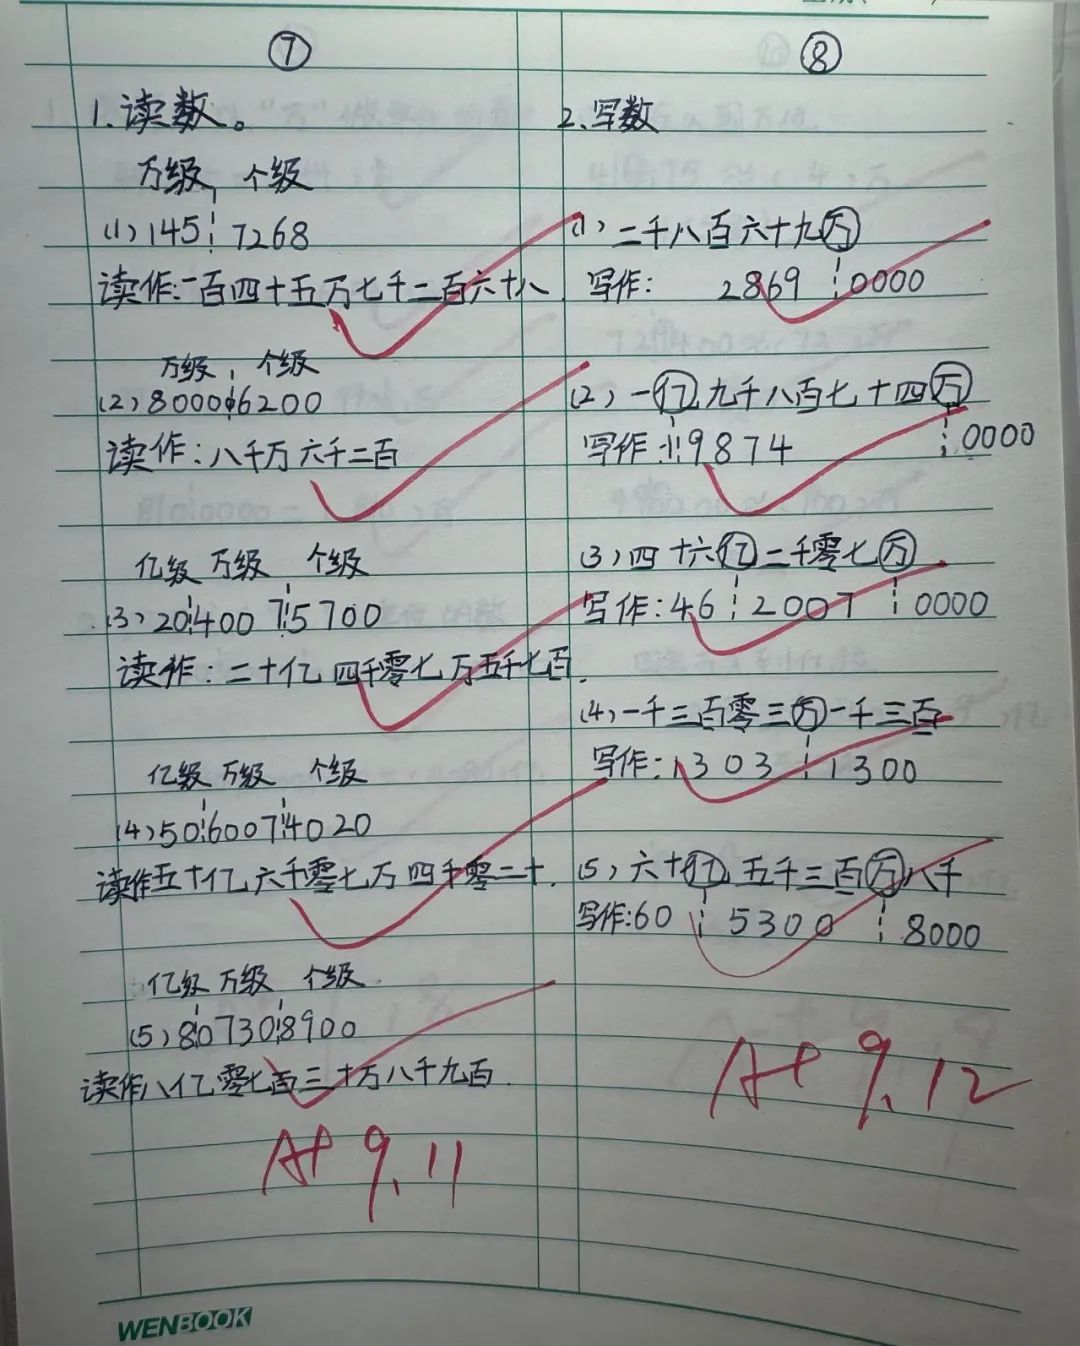 ⑦
1.读数。
万级 个级
(1)145┆7268
读作:一百四十五万七千二百六十八.
万级 个级
(2)8000┆6200
读作:八千万六千二百
亿级 万级 个级
(3)20┆4007┆5700
读作:二十亿四千零七万五千七百.
亿级 万级 个级
(4)50┆6007┆4020
读作五十亿六千零七万四千零二十.
亿级 万级 个级
(5)8┆0730┆8900
读作八亿零七百三十万八千九百.
A+ 9.11
⑧
2.写数
(1)二千八百六十九万
写作: 2869┆0000
(2)一亿九千八百七十四万
写作:1┆9874┆0000
(3)四十六亿二千零七万
写作:46┆2007┆0000
(4)一千三百零三万一千三百
写作:1303┆1300
(5)六十亿五千三百万八千
写作:60┆5300┆8000
A+ 9.12
WENBOOK